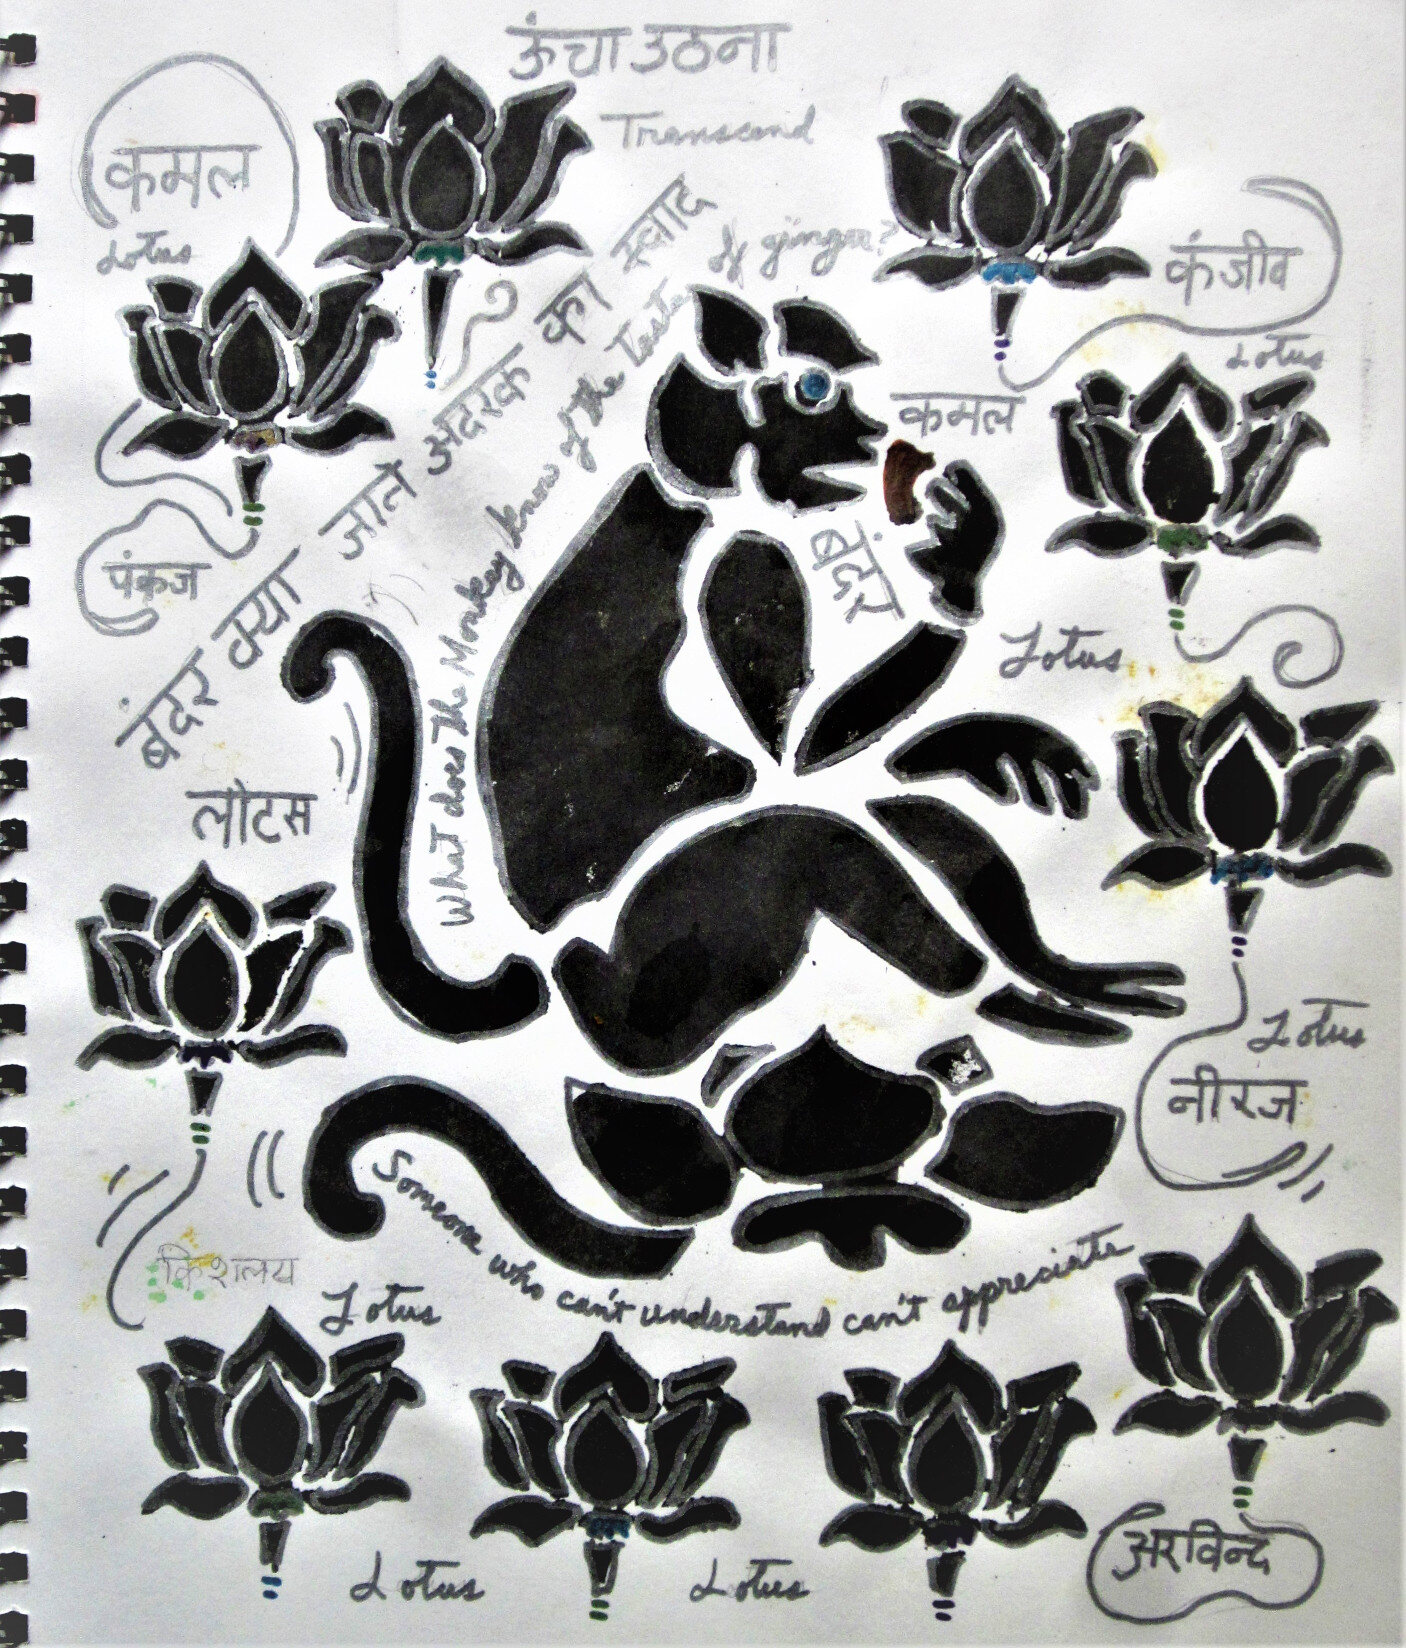 ऊंचा उठना
Transcend
कमल
Lotus
कंजीव
Lotus
बंदर क्या जाने अदरक का स्वाद
What does The Monkey know of the Taste of ginger?
कमल
बंदर
पंकज
Lotus
लोटस
Lotus
नीरज
Someone who can't understand can't appreciate
किशलय
Lotus
Lotus
Lotus
अरविन्द